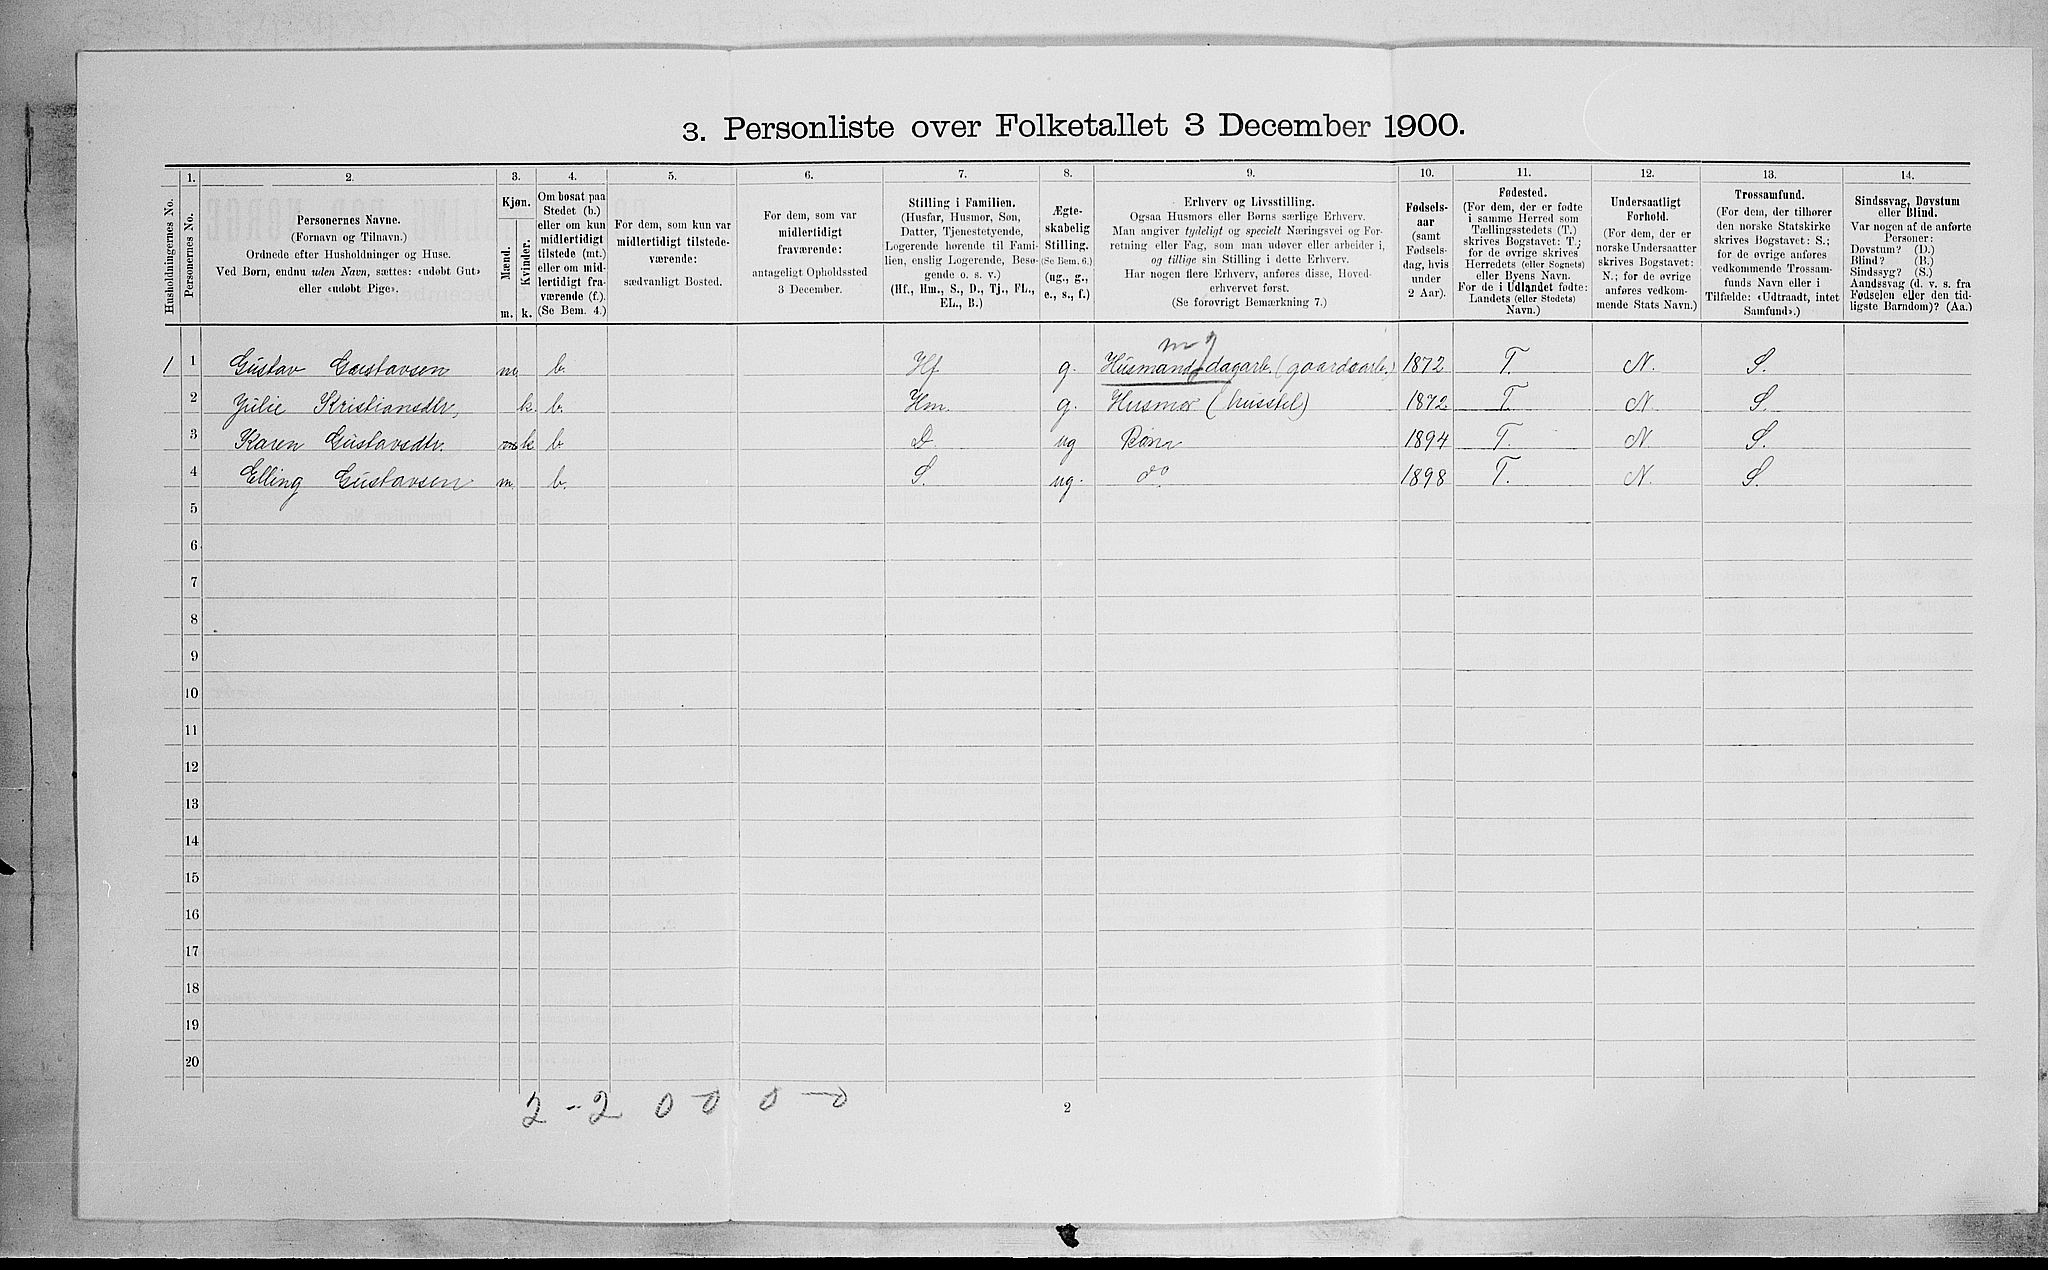 3. Personliste over Folketallet 3 December 1900.
Husholdningernes No.
1. Personernes No.
2. Personernes Navne.
(Fornavn og Tilnavn.)
Ordnede efter Husholdninger og Huse.
Ved Børn, endnu uden Navn, sættes: «udøbt Gut»
eller «udøbt Pige».
3. Kjøn.
Mænd. m.
Kvinder. k.
4. Om bosat paa
Stedet (b.)
eller om kun
midlertidigt
tilstede (mt.)
eller om mid-
lertidigt fra-
værende (f.).
(Se Bem. 4.)
5. For dem, som kun var
midlertidigt tilstede-
værende:
sædvanligt Bosted.
6. For dem, som var
midlertidigt
fraværende:
antageligt Opholdssted
3 December.
7. Stilling i Familien.
(Husfar, Husmor, Søn,
Datter, Tjenestetyende,
Logerende hørende til Fami-
lien, enslig Logerende, Besø-
gende o. s. v.)
(Hf., Hm., S., D., Tj., FL.,
EL., B.)
8. Ægte-
skabelig
Stilling.
(Se Bem. 6.)
(ug., g.,
e., s., f.)
9. Erhverv og Livsstilling.
Ogsaa Husmors eller Børns særlige Erhverv.
Man angiver tydeligt og specielt Næringsvei og For-
retning eller Fag, som man udøver eller arbeider i,
og tillige sin Stilling i dette Erhverv.
Har nogen flere Erhverv, anføres disse, Hoved-
erhvervet først.
(Se forøvrigt Bemærkning 7.)
10. Fødsels-
aar
(samt
Fødsels-
dag, hvis
under
2 Aar).
11. Fødested.
(For dem, der er fødte
i samme Herred som
Tællingsstedets (T.)
skrives Bogstavet: T.;
for de øvrige skrives
Herredets (eller Sognets)
eller Byens Navn.
For de i Udlandet fødte:
Landets (eller Stedets)
Navn.)
12. Undersaatligt
Forhold.
(For dem, der er
norske Undersaatter
skrives Bogstavet:
N.; for de øvrige
anføres vedkom-
mende Stats Navn.)
13. Trossamfund.
(For dem, der tilhører
den norske Statskirke
skrives Bogstavet: S.;
for de øvrige anføres
vedkommende Trossam-
funds Navn eller i
Tilfælde: «Udtraadt, intet
Samfund».)
14. Sindssvag, Døvstum
eller Blind.
Var nogen af de anførte
Personer:
Døvstum? (D.)
Blind? (B.)
Sindssyg? (S.)
Aandssvag (d. v. s. fra
Fødselen eller den tid-
ligste Barndom)? (Aa.)
1 1 Gustav Gustavsen m b. Hf g. Husmand, dagarb. (gaardsarb.) 1872 T. N. S.
2 Julie Kristiansdtr. k. b. Hm. g. Husmor (husstel) 1872 T. N S
3 Karen Gustavsdtr. k b D. ug Barn 1894 T. N S.
4 Elling Gustavsen m. b. S. ug. do 1898 T. N. S.
5
6
7
8
9
10
11
12
13
14
15
16
17
18
19
20
2 - 2 0 - 0 0 - 0
2